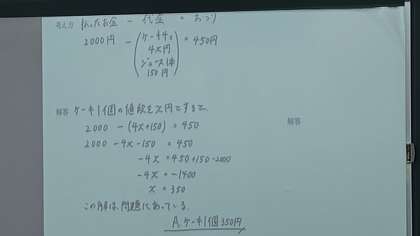 考え方 払ったお金 － 代金 ＝ おつり
2000円 － (ケーキ4ヶ 4x円 ジュース1本 150円) ＝ 450円
解答 ケーキ1個の値段をx円とすると、
2000 －(4x+150) = 450
2000 -4x -150 = 450
-4x = 450+150-2000
-4x = -1400
x = 350
この解は問題にあっている。
A. ケーキ1個350円
解答